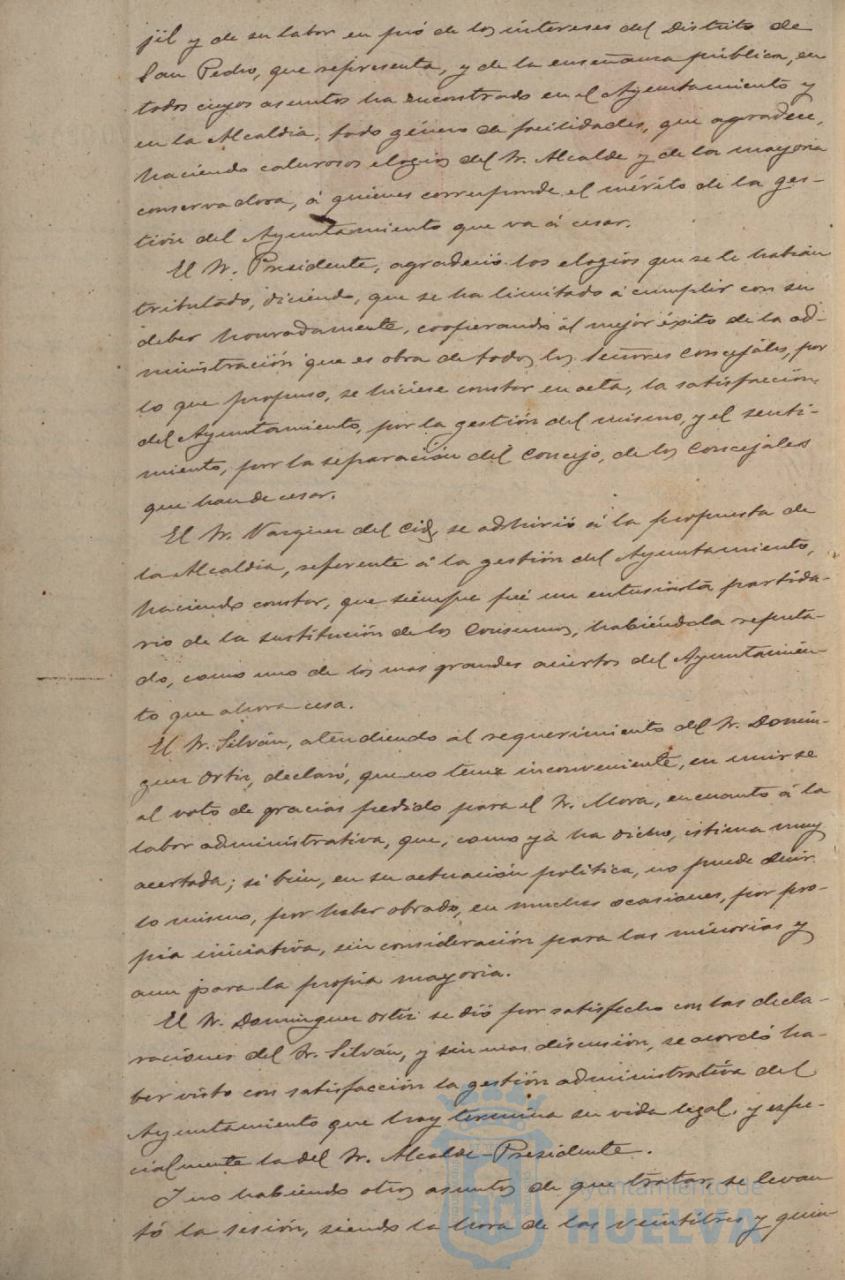 jil y de su labor en pró de los intereses del Distrito de
San Pedro, que representa, y de la enseñanza pública, en
todos cuyos asuntos ha encontrado en el Ayuntamiento y
en la Alcaldía, todo género de facilidades, que agradece,
haciendo calurosos elogios del Sr. Alcalde y de la mayoria
conservadora, á quienes corresponde el mérito de la ges-
tión del Ayuntamiento que va á cesar.
El Sr. Presidente, agradeció los elogios que se le habian
tributado, diciendo, que se ha limitado á cumplir con su
deber honradamente, cooperando al mejor éxito de la ad-
ministración que es obra de todos los Señores Concejales, por
lo que propuso, se hiciese constar en acta, la satisfacción
del Ayuntamiento, por la gestión del mismo, y el senti-
miento, por la separación del Concejo, de los Concejales
que han de cesar.
El Sr. Vazquez del Cid, se adhirió á la propuesta de
la Alcaldía, referente á la gestión del Ayuntamiento,
haciendo constar, que siempre fué un entusiasta partida-
rio de la sustitución de los Consumos, habiéndola reputa-
do, como uno de los mas grandes aciertos del Ayuntamien-
to que ahora cesa.
El Sr. Silván, atendiendo al requerimiento del Sr. Domin-
guez Ortiz, declaró, que no tenia inconveniente, en unirse
al voto de gracias pedido para el Sr. Mora, en cuanto á la
labor administrativa, que, como ya ha dicho, estima muy
acertada; si bien, en su actuación política, no puede decir
lo mismo, por haber obrado, en muchas ocasiones, por pro-
pia iniciativa, sin consideración para las minorias y
aun para la propia mayoria.
El Sr. Dominguez Ortiz se dió por satisfecho con las decla-
raciones del Sr. Silván, y sin mas discusión, se acordó ha-
ber visto con satisfacción la gestión administrativa del
Ayuntamiento que hoy termina su vida legal, y espe-
cialmente la del Sr. Alcalde-Presidente.
Y no habiendo otros asuntos de que tratar, se levan
tó la sesión, siendo la hora de las veintitres y quin-
Ayuntamiento de
HUELVA